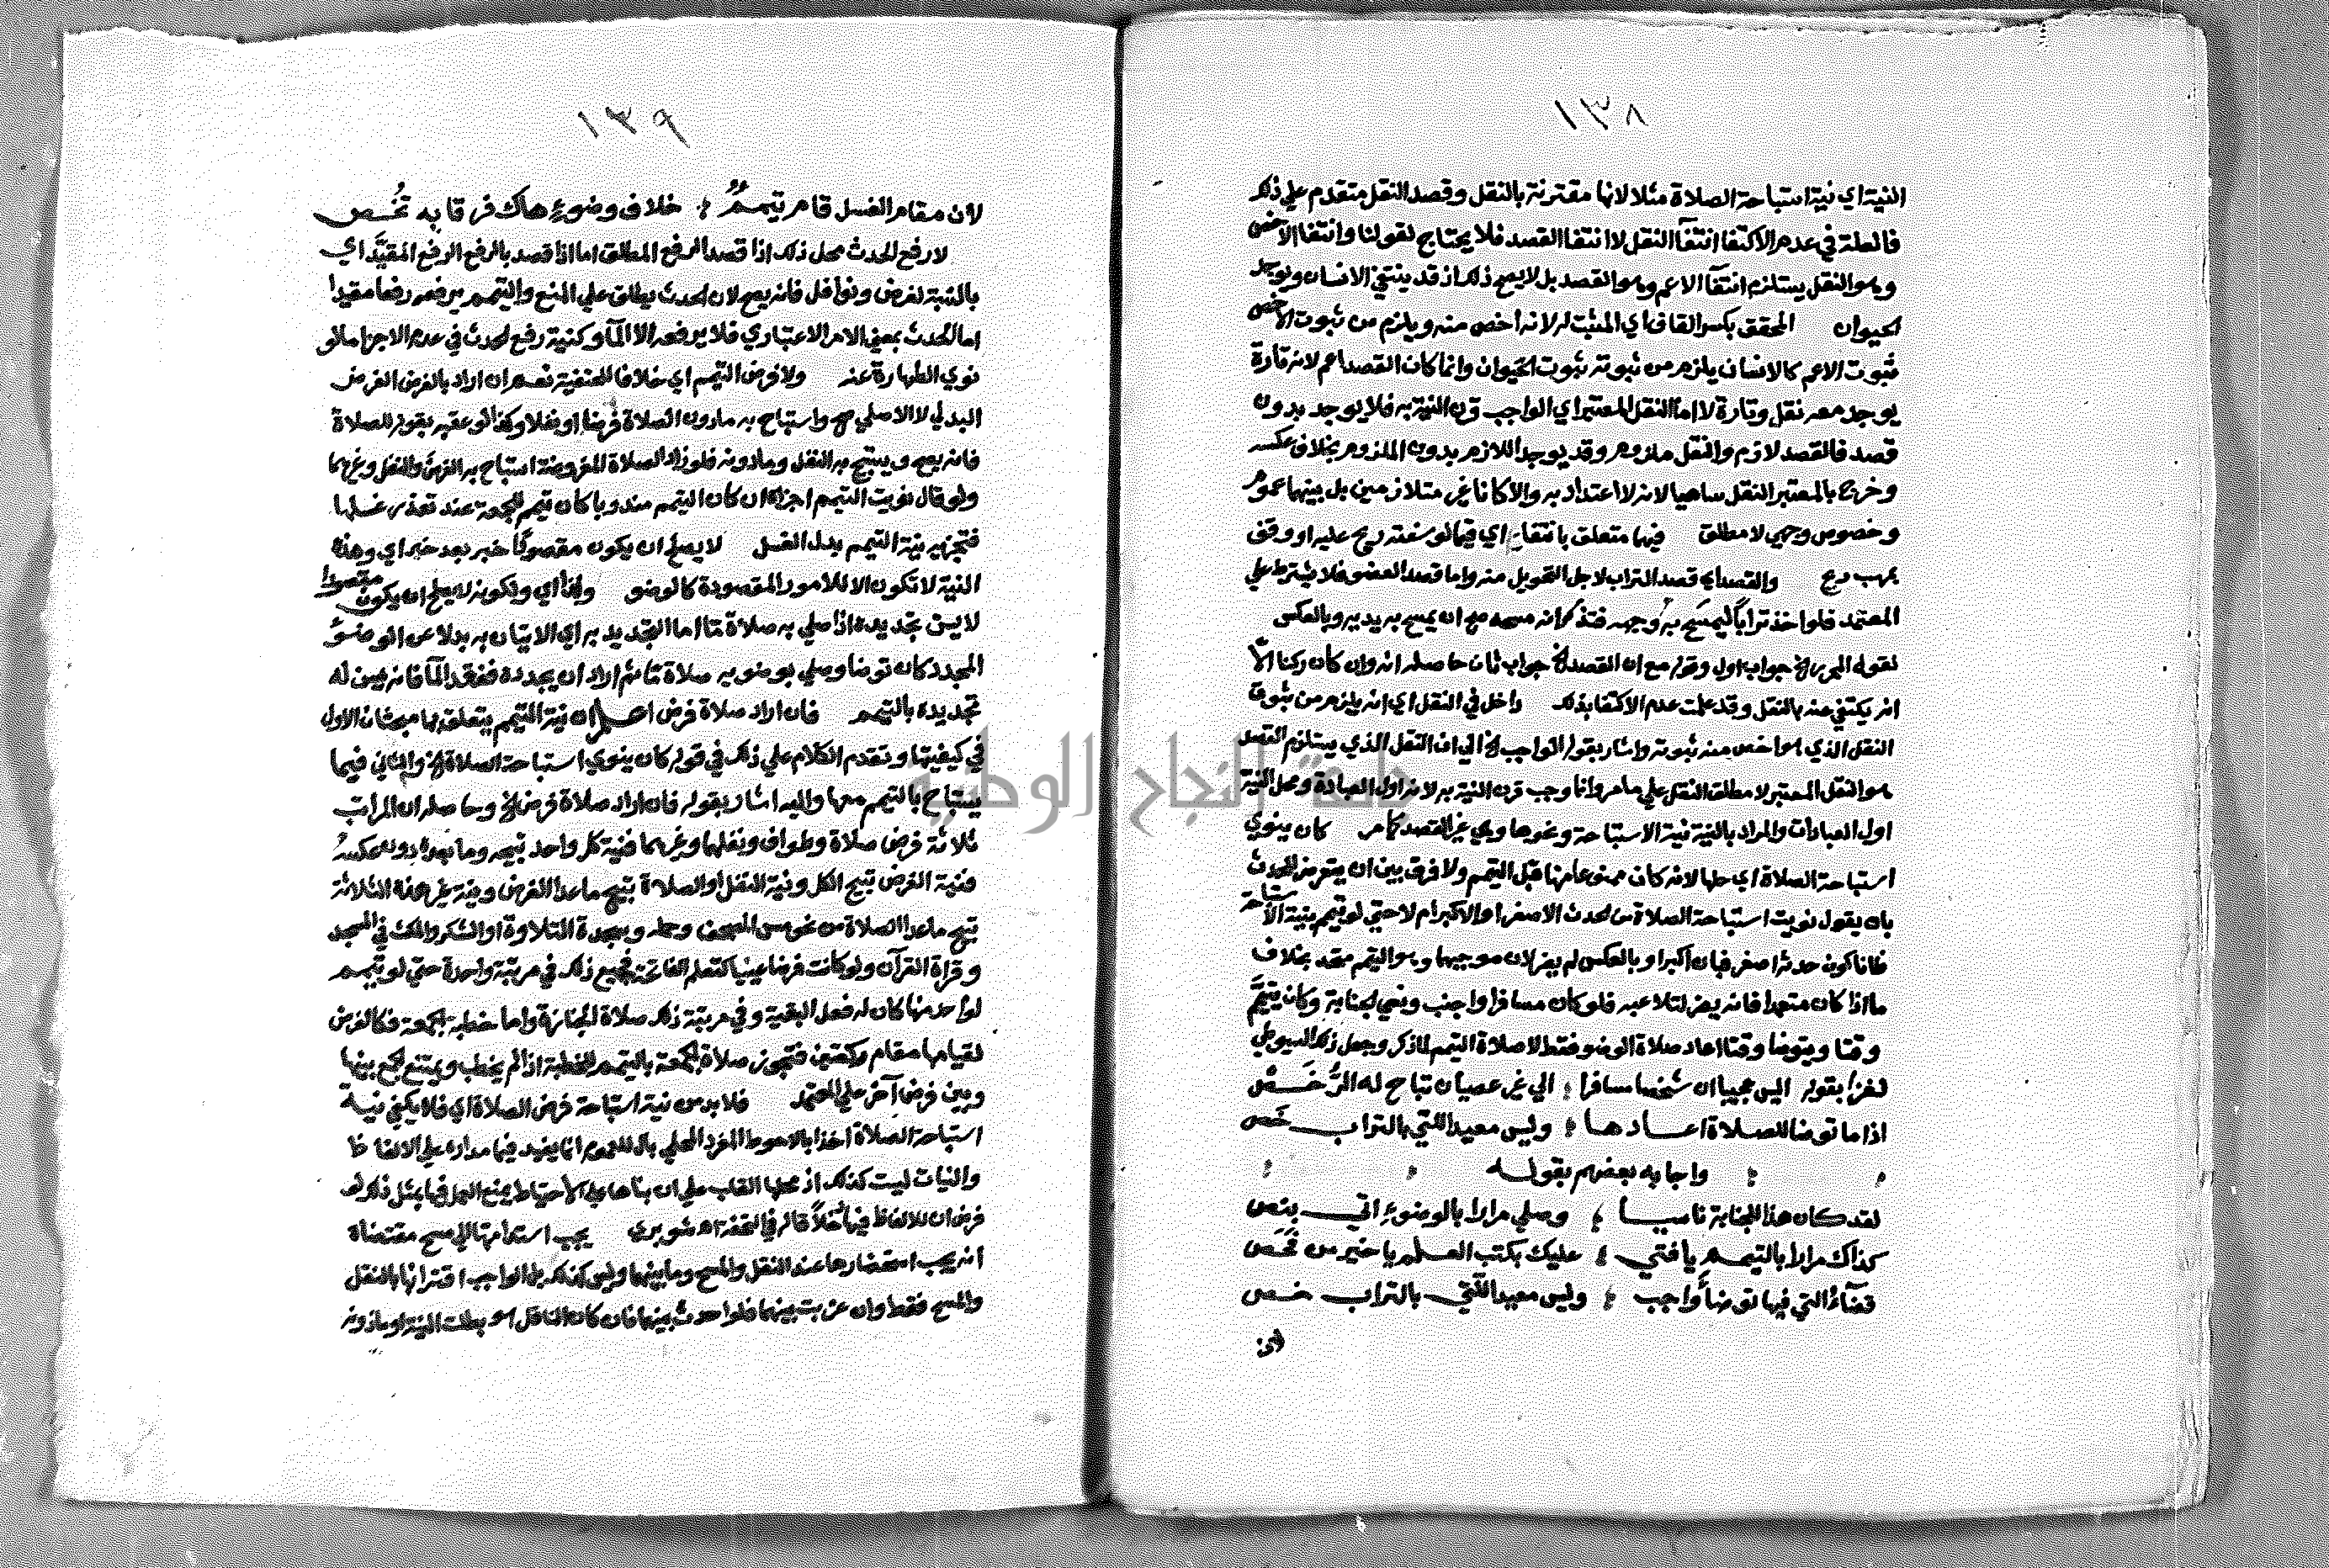 ١٣٨
النية اي نية استباحة الصلاة مثلا لانها مقترنة بالنقل وقصد النقل متقدم علي ذلك
فالعلة في عدم الاكتفا انتفآ النقل لا انتفا القصد فلا يحتاج لقولنا وانتفا الاخص
وهو النقل يستلزم انتفآ الاعم وهو القصد بل لا يصح ذلك اذ قد ينتفي الانسان ويوجد
الحيوان المحقق بكسر القاف اي المثبت له لانه اخص منه ويلزم من ثبوت الاخص
ثبوت الاعم كالانسان يلزم من ثبوته ثبوت الحيوان وانما كان القصد اعم لانه تارة
يوجد معه نقل وتارة لا اما النقل المعتبر اي الواجب قرن النية به فلا يوجد بدون
قصد فالقصد لازم والنقل ملزوم وقد يوجد اللازم بدون الملزوم بخلاف عكسه
وخرج بالمعتبر النقل ساهيا لانه لا اعتداد به والا كانا غير متلازمين بل بينهما عموم
وخصوص وجهي لا مطلق فيهما متعلق بانتفاء اي فيما لو سفته ريح عليه او وقف
بمهب ريح والقصد اي قصد التراب لاجل التحويل منه واما قصد العضو فلا يشترط علي
المعتمد فلو اخذ ترابا ليمسح به وجهه فتذكر انه مسحه صح ان يمسح به يديه وبالعكس
لقوله الخ جواب اول وقوله مع ان القصد الخ جواب ثان حاصله انه وان كان ركنا الا
انه يكتفي عنه بالنقل وقد علمت عدم الاكتفا بذلك داخل في النقل اي انه يلزم من ثبوت
النقل الذي هو اخص منه ثبوته واشار بقوله الواجب الخ الي ان النقل الذي يستلزم القصد
هو النقل المعتبر لا مطلق النقل علي ما مر وانما وجب قرن النية به لانه اول العبادة ومحل النية
اول العبادات والمراد بالنية نية الاستباحة ونحوها وهي غير القصد كما مر كان ينوي
استباحة الصلاة اي حلها لانه كان ممنوعا منها قبل التيمم ولا فرق بين ان يتعرض للحدث
بان يقول نويت استباحة الصلاة من الحدث الاصغر او الاكبر ام لا حتي لو تيمم بنية الاستباحة
ظانا كون حدثه اصغر فبان اكبر او بالعكس لم يضر لان موجبهما وهو التيمم متحد بخلاف
ما اذا كان متعمدا فانه يضر لتلاعبه فلو كان مسافرا واجنب ونسي الجنابة وكان يتيمم
وقتا ويتوضا وقتا اعاد صلاة الوضو فقط لا صلاة التيمم لما ذكر وجعل ذلك السيوطي
لغزا بقوله اليس عجيبا ان شخصا مسافرا ؛ الي غير عصيان تباح له الرُّخَص
اذا ما توضا للصلاة اعادها ؛ وليس معيدا للتي بالتراب خَص
واجابه بعضهم بقوله
لقد كان هذا للجنابة ناسيا ؛ وصلي مرارا بالوضوءِ اتي بنص
كذاك مرارا بالتيمم يا فتي ؛ عليك بكتب العلم يا خير من فحَص
قضآءُ التي فيها توضأ واجب ؛ وليس معيدا للتي بالتراب خص
لان
١٣٩
لان مقام الغسل قام تيممٌ ؛ خلاف وضوءٍ هاك فرقا به تخُص
لا رفع الحدث محل ذلك اذا قصد الرفع المطلق اما اذا قصد بالرفع الرفع المقيد اي
بالنسبة لفرض ونوافل فانه يصح لان الحدث يطلق علي المنع والتيمم يرفعه رفعا مقيدا
اما الحدث بمعني الامر الاعتباري فلا يرفعه الا المآ وكنية رفع الحدث في عدم الاجزا ما لو
نوي الطهارة عنه ولا فرض التيمم اي خلافا للحنفية نعم ان اراد بالفرض الفرض
البدلي لا الاصلي صح واستباح به ما دون الصلاة فرضا او نفلا وكذا لو عقبه بقوله للصلاة
فانه يصح ويستبيح به النفل وما دونه فلو زاد الصلاة المفروضة استباح به الفرض والنفل وغيرهما
ولو قال نويت التيمم اجزاه ان كان التيمم مندوبا كان تيمم للجمعة عند تعذر غسلها
فتجزيه نية التيمم بدل الغسل لا يصلح ان يكون مقصودا خبر بعد خبر اي وهذه
النية لا تكون الا للامور المقصودة كالوضو ولذا اي ولكونه لا يصلح ان يكون مقصودا
لا يسن تجديده اذا صلي به صلاة ما اما التجديد به اي الاتيان به بدلا عن الوضوء
المجدد كان توضا وصلي بوضويه صلاة ما ثم اراد ان يجدده ففقد المآ فانه يسن له
تجديده بالتيمم فان اراد صلاة فرض اعلم ان نية التيمم يتعلق بها مبحثان الاول
في كيفيتها وتقدم الكلام علي ذلك في قوله كان ينوي استباحة الصلاة الخ والثاني فيما
يستباح بالتيمم معها واليه اشار بقوله فان اراد صلاة فرض الخ وحاصله ان المراتب
ثلاثة فرض صلاة وطواف ونفلها وغيرهما فنية كل واحد تبيحه وما بعده دون عكسه
فنية الفرض تبيح الكل ونية النفل او الصلاة تبيح ما عدا الفرض ونية غير هذه الثلاثة
تبيح ما عدا الصلاة من نحو مس المصحف وحمله وسجدة التلاوة او الشكر والمكث في المسجد
وقراة القرآن ولو كانت فرضا عينيا كتعلم الفاتحة فجميع ذلك في مرتبة واحدة حتي لو تيمم
لواحد منها كان له فعل البقية وفي مرتبة ذلك صلاة الجنازة واما خطبة الجمعة فكالفرض
لقيامها مقام ركعتين فتجوز صلاة الجمعة بالتيمم للخطبة اذا لم يخطب ويمتنع الجمع بينها
وبين فرض آخر علي المعتمد فلا بد من نية استباحة فرض الصلاة اي فلا يكفي نية
استباحة الصلاة اخذا بالاحوط المفرد المحلي بال للعموم انما يفيد فيما مداره علي الالفاظ
والنيات ليست كذلك اذ محلها القلب علي ان بناها علي الاحتياط يمنع العمل فيها بمثل ذلك لو
فرض ان للالفاظ فيها دخلا قاله في التحفة اه شوبري يجب استدامتها الي مسح مقتضاه
انه يجب استحضارها عند النقل والمسح وما بينهما وليس كذلك بل الواجب اقترانها بالنقل
والمسح فقط وان عزبت بينهما فلو احدث بينهما فان كان الناقل هو بطلت النية او ماذونه